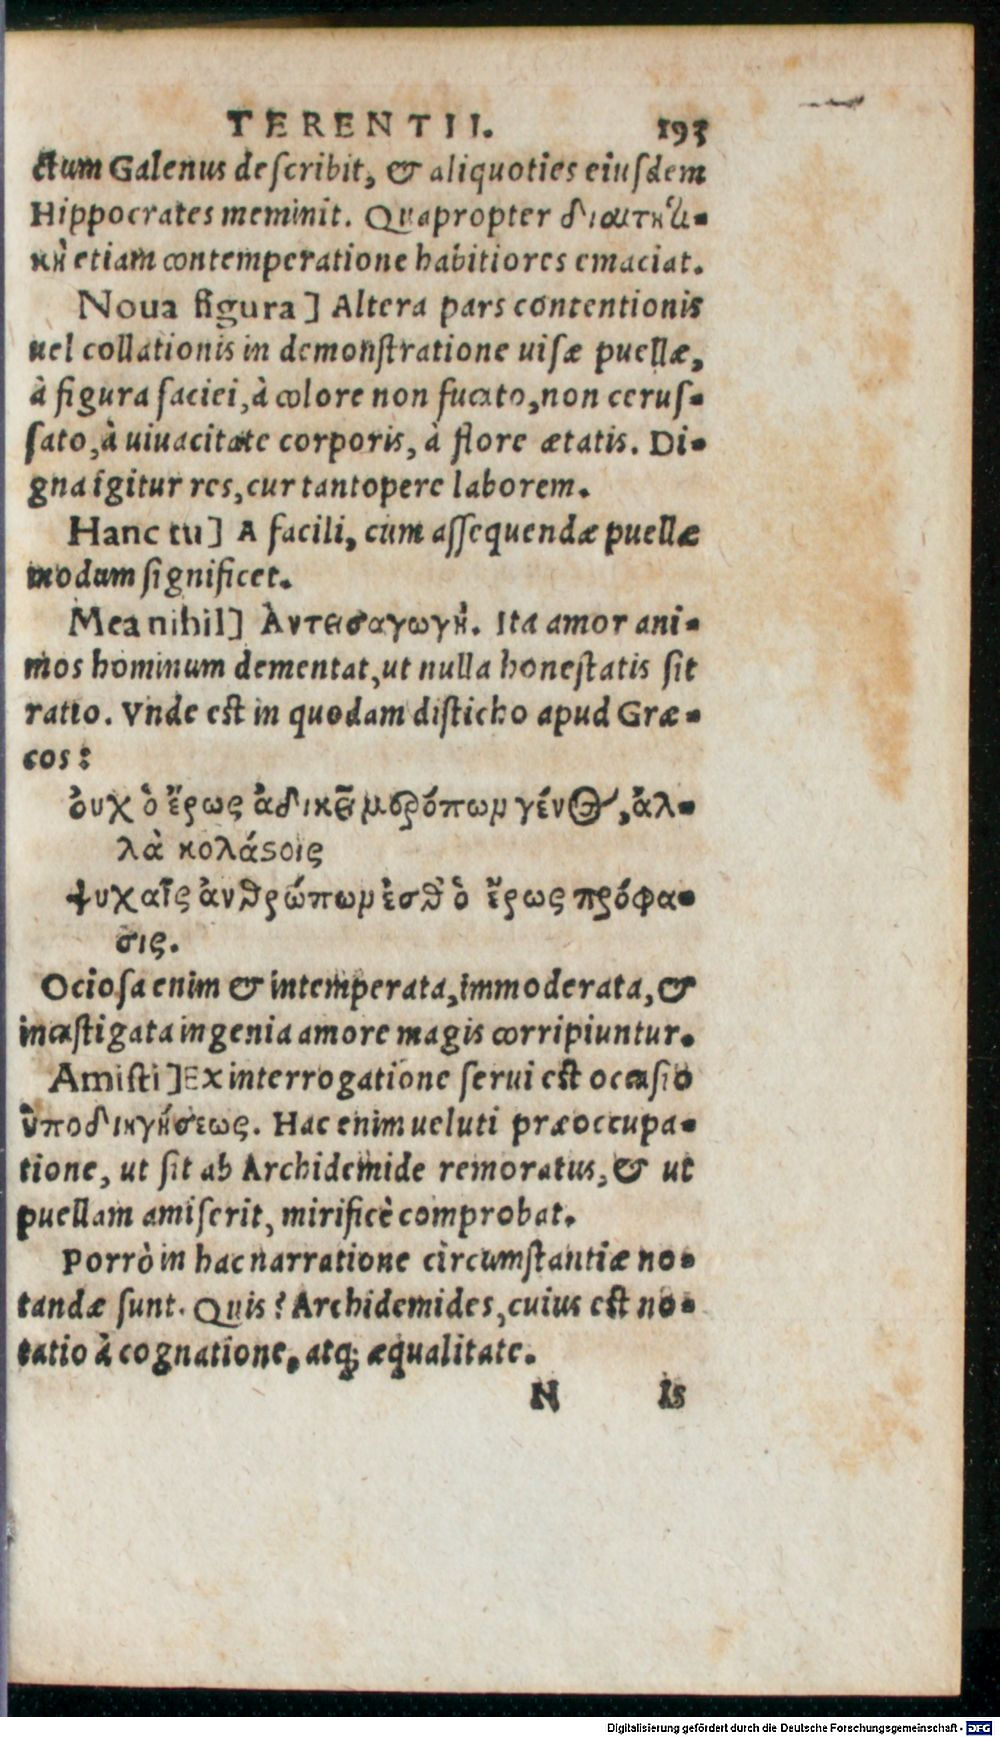 TERENTII. 193
ctum Galenus describit, & aliquoties eiusdem
Hippocrates meminit. Quapropter διαιτητι-
κὴ etiam contemperatione habitiores emaciat.
Noua figura] Altera pars contentionis
uel collationis in demonstratione uisæ puellæ,
à figura faciei, à colore non fucato, non cerus-
sato, à uiuacitate corporis, à flore ætatis. Di-
gna igitur res, cur tantopere laborem.
Hanc tu] A facili, cum assequendæ puellæ
modum significet.
Mea nihil] Ἀντεισαγωγὴ. Ita amor ani-
mos hominum dementat, ut nulla honestatis sit
ratio. Vnde est in quodam disticho apud Græ-
cos:
ὀυχ ὁ ἔρως ἀδικεῖ μερόπων γένος, ἀλ-
λὰ κολάσοις
ψυχαῖς ἀνθρώπων ἐσθ' ὁ ἔρως πρόφα-
σις.
Ociosa enim & intemperata, immoderata, &
incastigata ingenia amore magis corripiuntur.
Amisti] Ex interrogatione serui est occasio
ὑποδιηγήσεως. Hac enim ueluti præoccupa-
tione, ut sit ab Archidemide remoratus, & ut
puellam amiserit, mirificè comprobat.
Porrò in hac narratione circumstantiæ no-
tandæ sunt. Quis? Archidemides, cuius est no-
tatio à cognatione, atq; æqualitate.
N Is
Digitalisierung gefördert durch die Deutsche Forschungsgemeinschaft - DFG